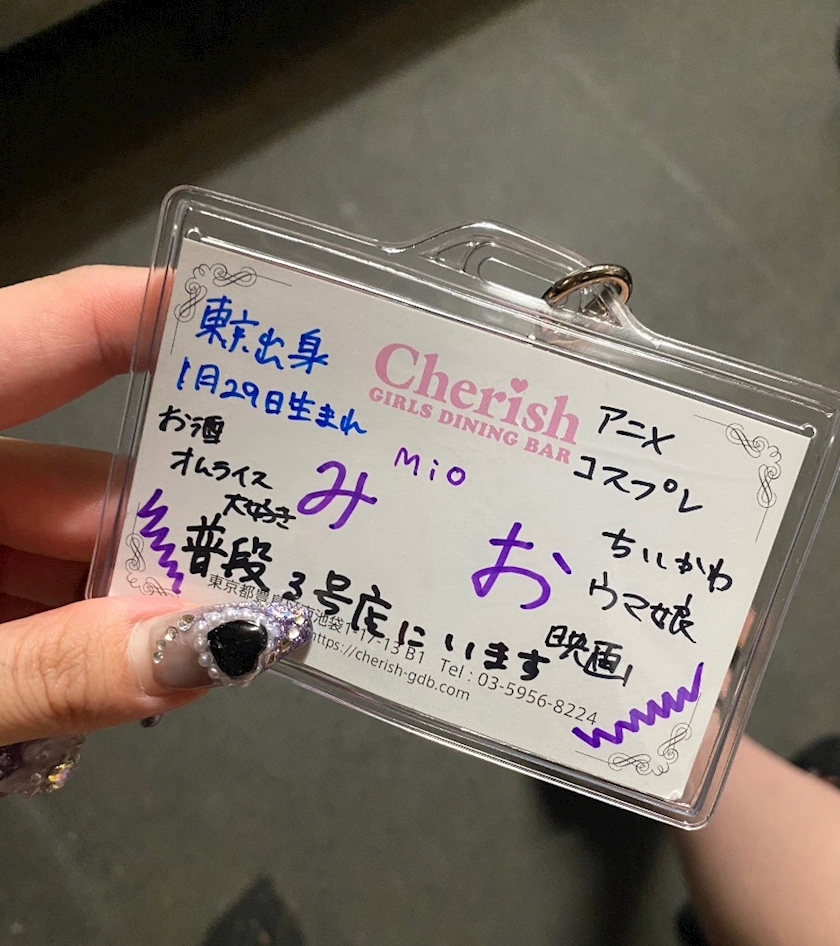 東京出身
1月29日生まれ
お酒
オムライス
大好き
Cherish
GIRLS DINING BAR
Mio
みお
アニメ
コスプレ
ちいかわ
ウマ娘
映画
普段3号店にいます
東京都豊島区東池袋1-17-13 B1 Tel : 03-5956-8224
https://cherish-gdb.com